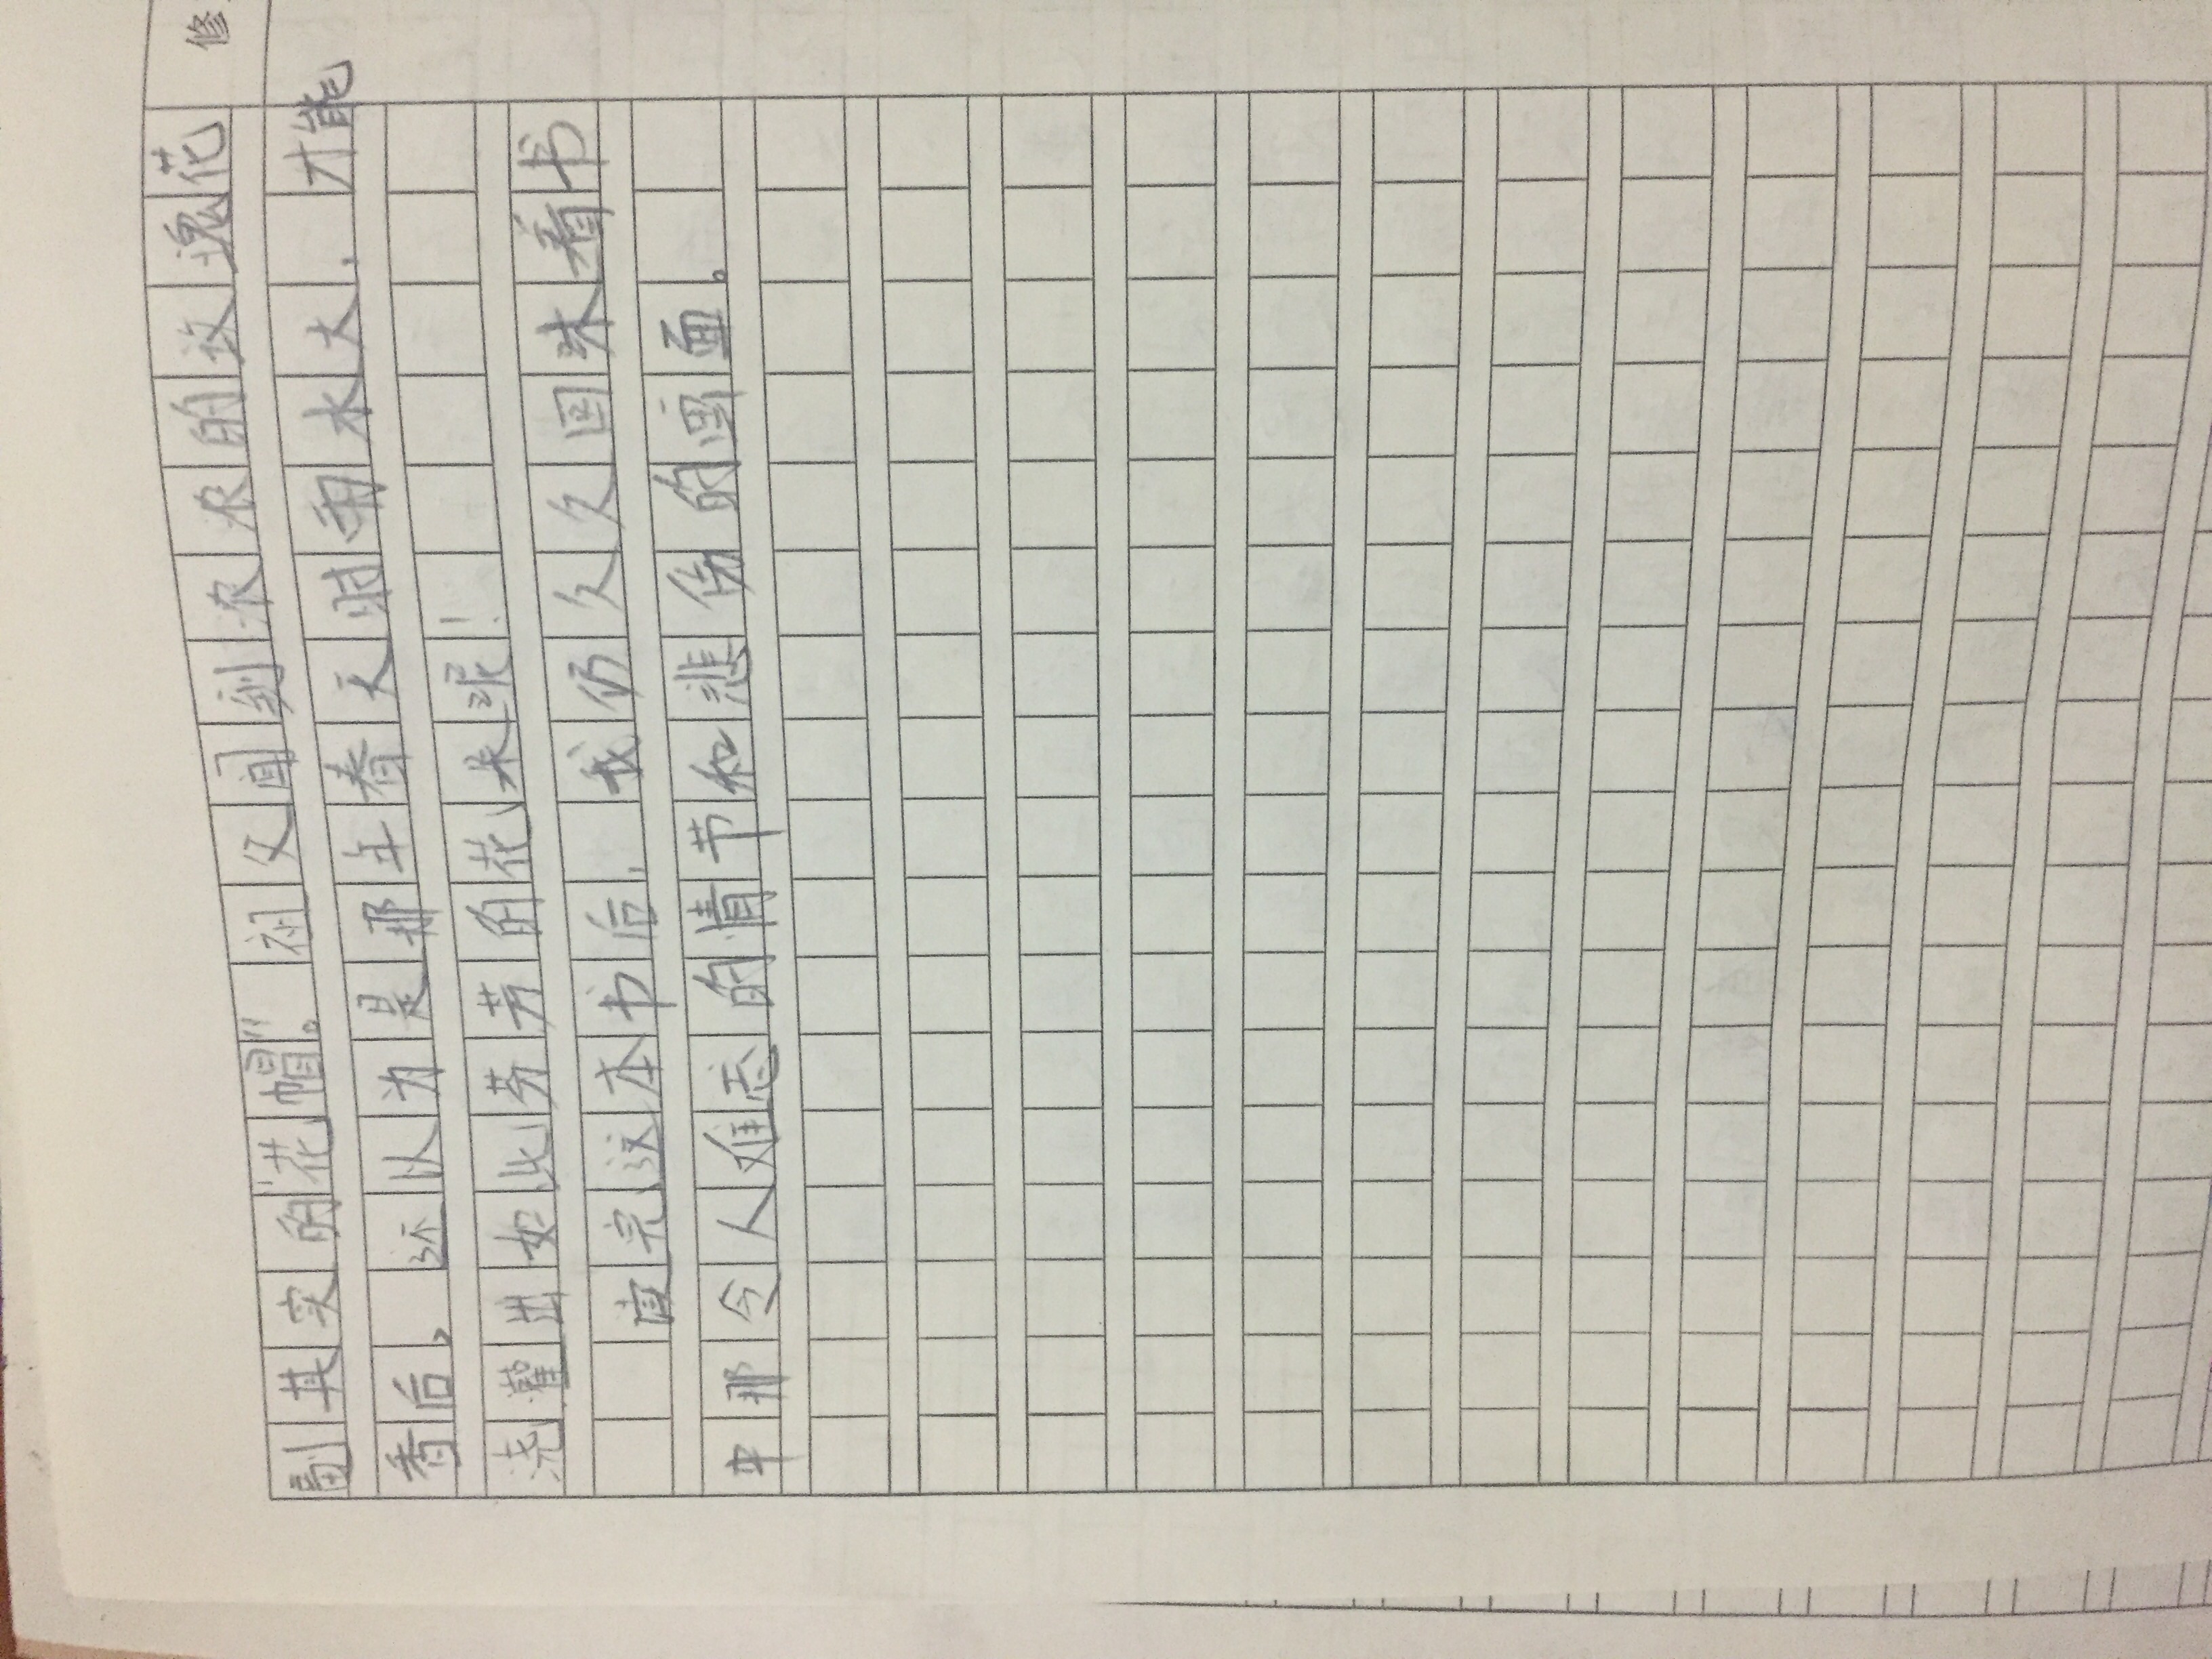 修
副其实的“花帽”。祖父闻到浓浓的玫瑰花
香后，还以为是那年春天时雨水大，才能
浇灌出如此芬芳的花来呢！
完这本书后，我仍久久回味着书
中那令人难忘的情节和悲伤的画面。